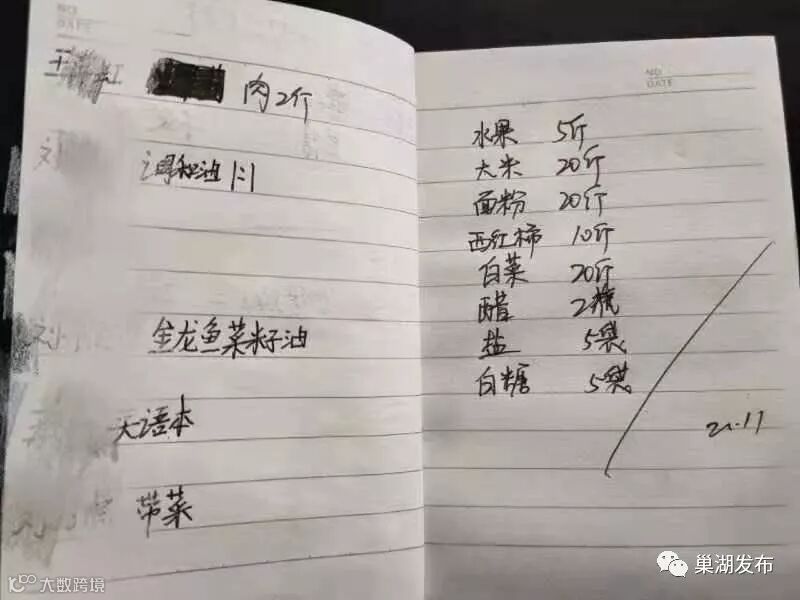 NO
DATE
肉2斤
调和油 1:1
金龙鱼菜籽油
大语本
带菜
NO
DATE
水果 5斤
大米 20斤
面粉 20斤
西红柿 10斤
白菜 20斤
醋 2瓶
盐 5袋
白糖 5袋
21.17
大数跨境
巢湖发布